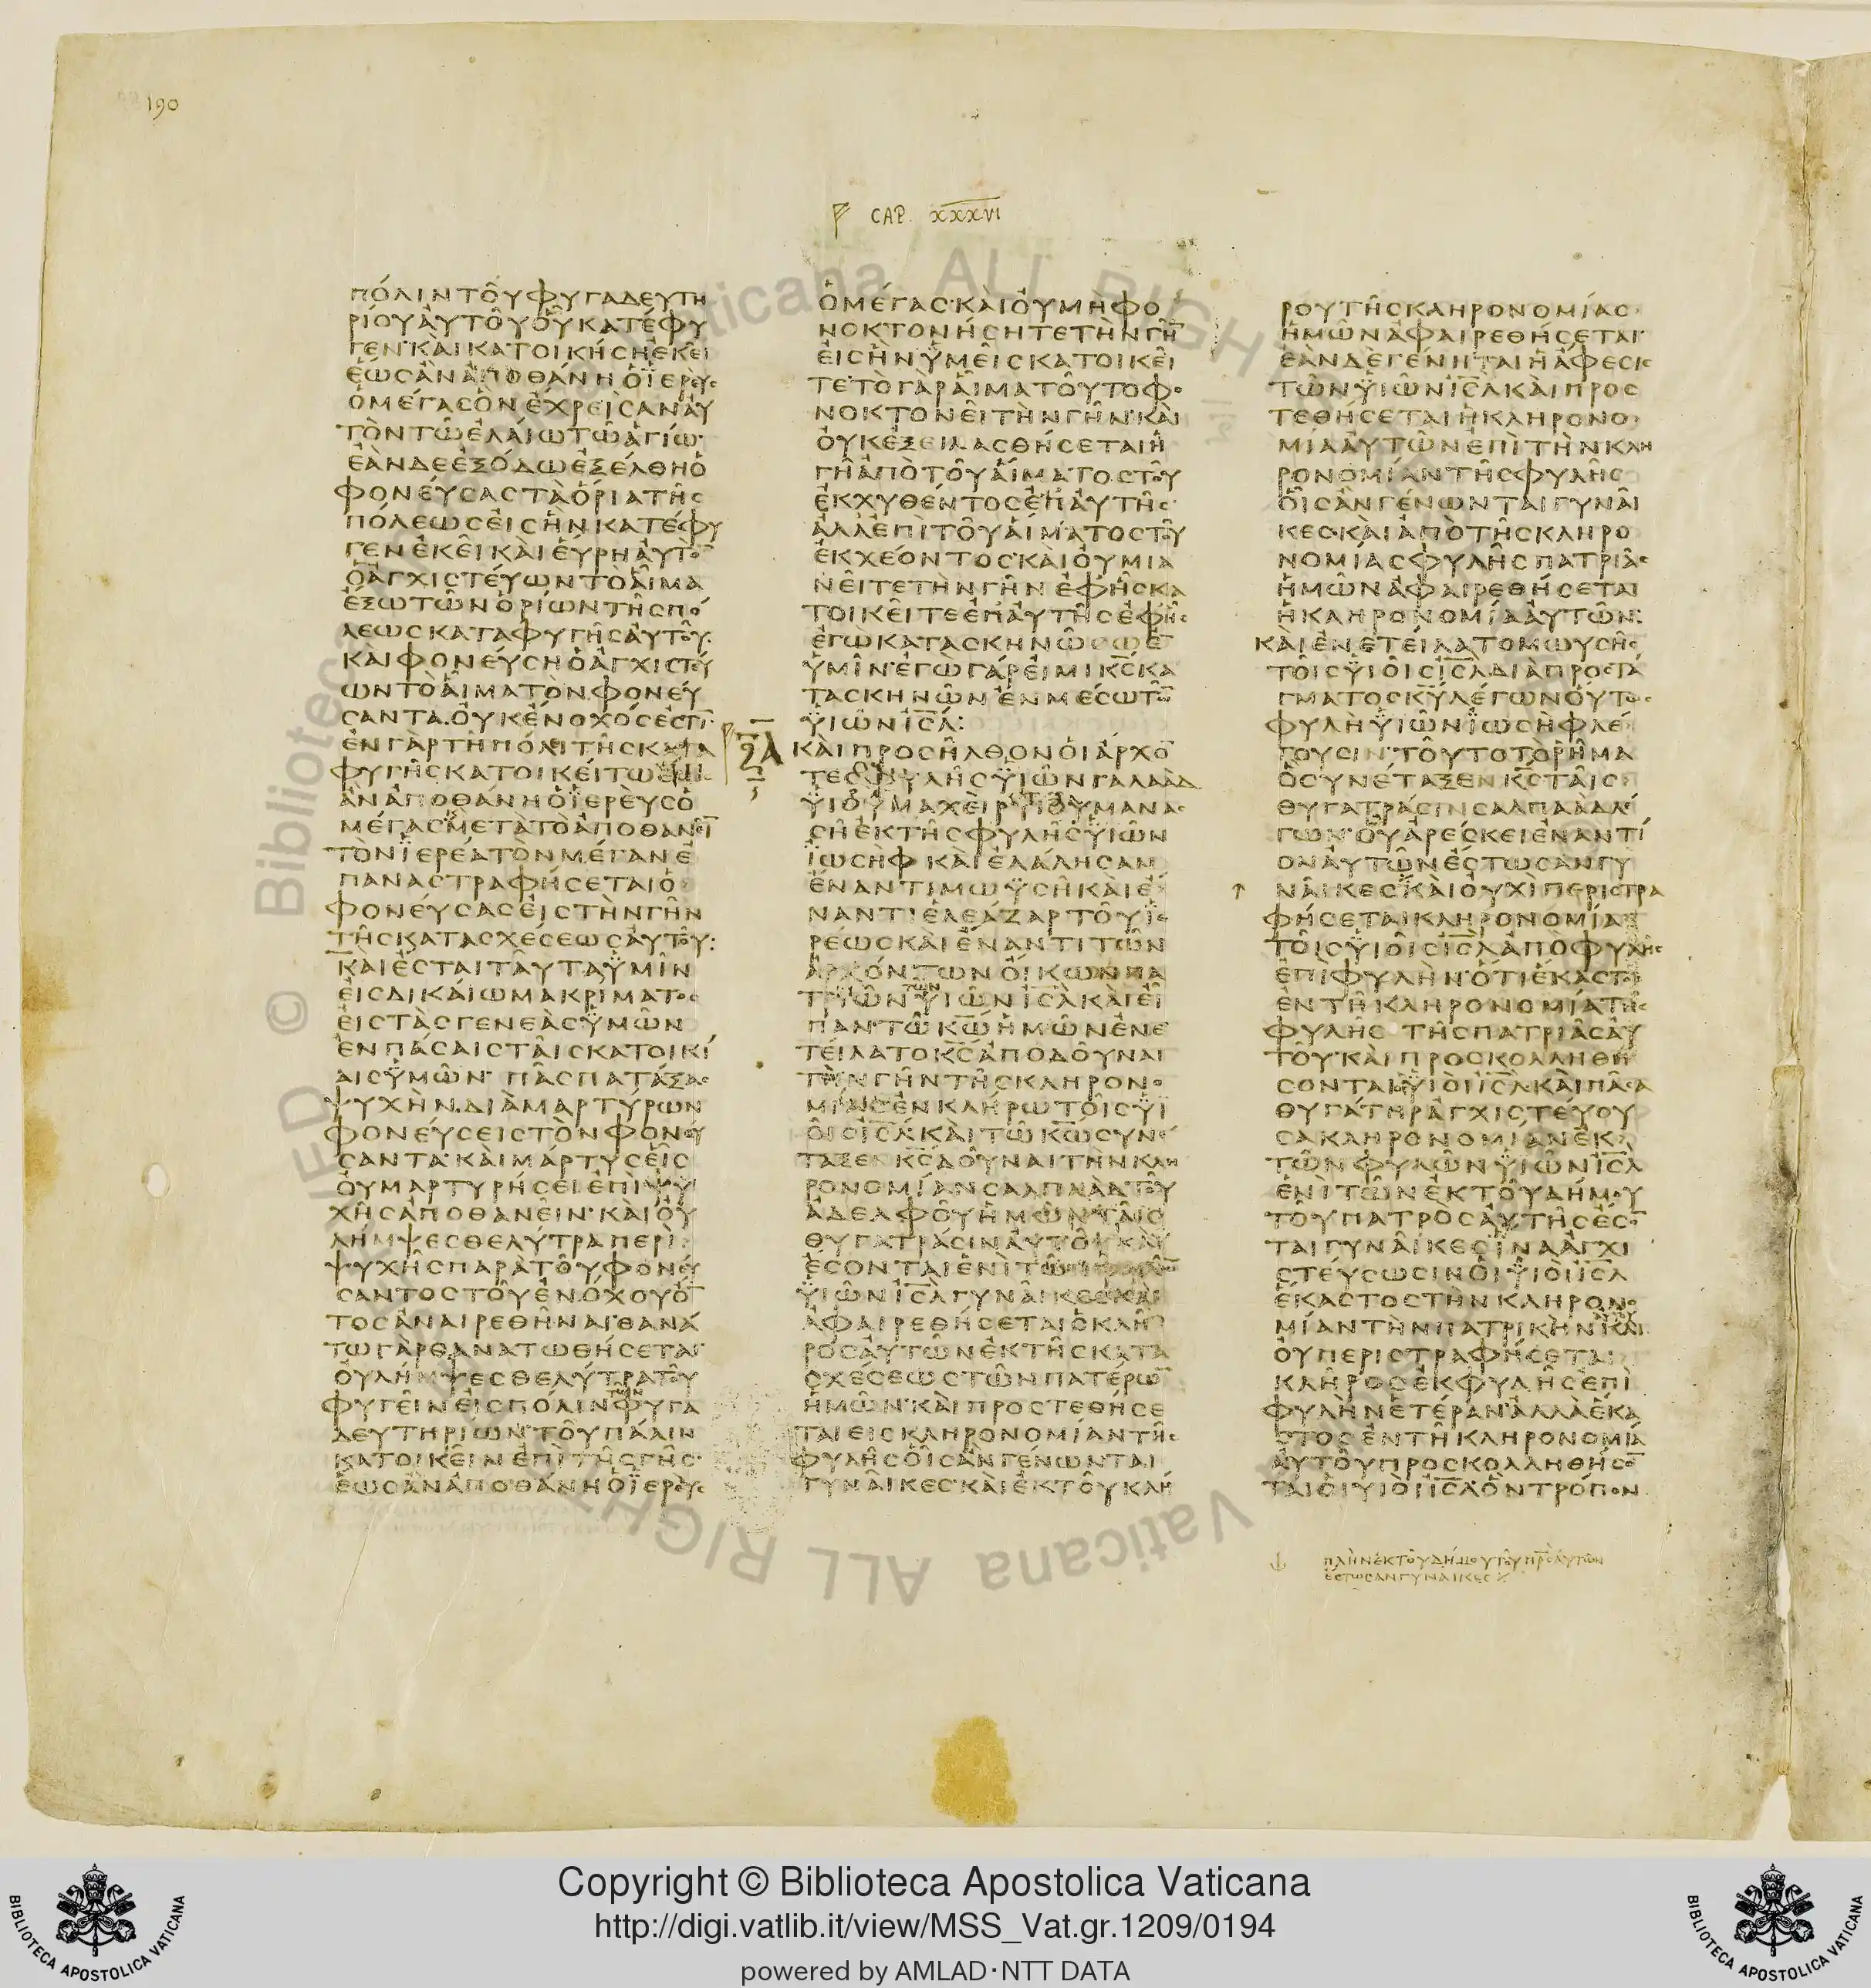 190
CAP. XXXVI
πόλιν τοῦ φυγαδευτη
ρίου αὐτοῦ οὗ κατέφυ
γεν· καὶ κατοικήσει ἐκεῖ
ἕως ἂν ἀποθάνη ὁ ἱερεὺς
ὁ μέγας ὃν ἔχρεισαν αὐ
τὸν τῶ ἐλαίω τῶ ἁγίω·
ἐὰν δὲ ἐξόδω ἐξέλθη ὁ
φονεύσας τὰ ὅρια τῆς
πόλεως εἰς ἣν κατέφυ
γεν ἐκεῖ καὶ εὕρη αὐτὸ̄
ὁ ἀγχιστεύων τὸ αἷμα
ἔξω τῶν ὁρίων τῆς πό
λεως καταφυγῆς αὐτοῦ·
καὶ φονεύση ὁ ἀγχιστεύ
ων τὸ αἷμα τὸν φονεύ
σαντα. οὐκ ἔνοχός ἐστῑ·
ἐν γὰρ τῆ πόλει τῆς κατα
φυγῆς κατοικείτω ἕως
ἂν ἀποθάνη ὁ ἱερεὺς ὁ
μέγας· μετὰ τὸ ἀποθανεῖ̄
τὸν ἱερέα τὸν μέγαν ἐ
παναστραφήσεται ὁ
φονεύσας εἰς τὴν γῆν
τῆς κατασχέσεως αὐτοῦ:
καὶ ἔσται ταῦτα ὑμῖν
εἰς δικαίωμα κρίματος
εἰς τὰς γενεὰς ὑμῶν
ἐν πάσαις ταῖς κατοικί
αις ὑμῶν· πᾶς πατάξας
ψυχὴν. διὰ μαρτύρων
φονεύσεις τὸν φονεύ
σαντα· καὶ μάρτυς εἷς
οὐ μαρτυρήσει ἐπὶ ψυ
χῆς ἀποθανεῖν· καὶ οὐ
λήμψεσθε λύτρα περὶ
ψυχῆς παρὰ τοῦ φονεύ
σαντος τοῦ ἐνόχου ὄ̄
τος ἀναιρεθῆναι· θανά
τω γὰρ θανατωθήσεται·
οὐ λήμψεσθε λύτρα τοῦ
φυγεῖν εἰς πόλιν τῶν φυγα
δευτηρίων· τοῦ πάλιν
κατοικεῖν ἐπὶ τῆς γῆς·
ἕως ἂν ἀποθάνη ὁ ἱερεὺς
ὁ μέγας· καὶ οὐ μὴ φο
νοκτονήσητε τὴν γῆ̄
εἰς ἣν ὑμεῖς κατοικεῖ
τε· τὸ γὰρ αἷμα τοῦτο φο
νοκτονεῖ τὴν γῆν· καὶ
οὐκ ἐξειλασθήσεται ἡ
γῆ ἀπὸ τοῦ αἵματος τοῦ
ἐκχυθέντος ἐπ᾽ αὐτῆς·
ἀλλ᾽ ἐπὶ τοῦ αἵματος τοῦ
ἐκχέοντος· καὶ οὐ μια
νεῖτε τὴν γῆν ἐφ᾽ ἧς κα
τοικεῖτε ἐπ᾽ αὐτῆς ἐφ᾽ ἧς
ἐγὼ κατασκηνώσω ἐ̄
ὑμῖν· ἐγὼ γάρ εἰμι κ̄ς̄ κα
τασκηνῶν ἐν μέσω τῶ̄
υἱῶν ι̅σ̅λ̅:
καὶ προσῆλθον οἱ ἄρχο̄
τες φυλῆς υἱῶν γαλαὰδ
υἱοῦ μαχεὶρ υἱοῦ μανας
σῆ ἐκ τῆς φυλῆς υἱῶν
ἰωσὴφ καὶ ἐλάλησαν
ἔναντι μωυσῆ καὶ ἔ
ναντι ἐλεάζαρ τοῦ ἱε
ρέως καὶ ἔναντι τῶν
ἀρχόντων οἴκων πα
τριῶν τῶν υἱῶν ι̅σ̅λ̅ καὶ εἶ
παν· τῶ κ̅ω̅ ἡμῶν ἐνε
τείλατο κ̅ς̅ ἀποδοῦναι
τὴν γῆν τῆς κληρονο
μίας ἐν κλήρω τοῖς υἱ
οῖς ι̅σ̅λ̅· καὶ τῶ κ̅ω̅ συνέ
ταξεν κ̅ς̅ δοῦναι τὴν κλη
ρονομίαν σαλπαὰδ τοῦ
ἀδελφοῦ ἡμῶν ταῖς
θυγατράσιν αὐτοῦ· καὶ
ἔσονται ἑνὶ τῶν φυλῶ̄
υἱῶν ι̅σ̅λ̅ γυναῖκες καὶ
ἀφαιρεθήσεται ὁ κλῆ
ρος αὐτῶν ἐκ τῆς κατα
σχέσεως τῶν πατέρω̄
ἡμῶν· καὶ προστεθήσε
ται εἰς κληρονομίαν τῆς
φυλῆς οἷς ἂν γένωνται
γυναῖκες· καὶ ἐκ τοῦ κλή
ρου τῆς κληρονομίας
ἡμῶν ἀφαιρεθήσεται·
ἐὰν δὲ γένηται ἡ ἄφεσις
τῶν υἱῶν ι̅σ̅λ̅ καὶ προς
τεθήσεται ἡ κληρονο
μία αὐτῶν ἐπὶ τὴν κλη
ρονομίαν τῆς φυλῆς
οἷς ἂν γένωνται γυναῖ
κες· καὶ ἀπὸ τῆς κληρο
νομίας φυλῆς πατριᾶς
ἡμῶν ἀφαιρεθήσεται
ἡ κληρονομία αὐτῶν:
καὶ ἐνετείλατο μωυσῆς
τοῖς υἱοῖς ι̅σ̅λ̅ διὰ προστά
γματος κ̅υ̅ λέγων οὕτως
φυλὴ υἱῶν ἰωσὴφ λέ
γουσιν· τοῦτο τὸ ῥῆμα
ὃ συνέταξεν κ̅ς̅ ταῖς
θυγατράσιν σαλπαὰδ λέ
γων· οὗ ἀρέσκει ἐναντί
ον αὐτῶν ἔστωσαν γυ
ναῖκες· καὶ οὐχὶ περιστρα
φήσεται κληρονομία
τοῖς υἱοῖς ι̅σ̅λ̅ ἀπὸ φυλῆς
ἐπὶ φυλὴν· ὅτι ἕκαστος
ἐν τῆ κληρονομία τῆς
φυλῆς τῆς πατριᾶς αὐ
τοῦ· καὶ προσκολληθή
σονται οἱ υἱοὶ ι̅σ̅λ̅· καὶ πᾶσα
θυγάτηρ ἀγχιστεύου
σα κληρονομίαν ἐκ
τῶν φυλῶν υἱῶν ι̅σ̅λ̅
ἑνὶ τῶν ἐκ τοῦ δήμου
τοῦ πατρὸς αὐτῆς ἔσο̄
ται γυναῖκες ἵνα ἀγχι
στεύσωσιν οἱ υἱοὶ ι̅σ̅λ̅
ἕκαστος τὴν κληρονο
μίαν τὴν πατρικὴν· καὶ
οὐ περιστραφήσεται
κλῆρος ἐκ φυλῆς ἐπὶ
φυλὴν ἑτέραν· ἀλλὰ ἕκα
στος ἐν τῆ κληρονομία
αὐτοῦ προσκολληθήσο̄
ται οἱ υἱοὶ ι̅σ̅λ̅ ὃν τρόπον
πλὴν ἐκ τοῦ δήμου τοῦ π̅ρ̅ο̅ς̅ αὐτῶν
ἔστωσαν γυναῖκες
© Biblioteca Apostolica Vaticana ALL RIGHTS RESERVED
Copyright © Biblioteca Apostolica Vaticana
http://digi.vatlib.it/view/MSS_Vat.gr.1209/0194
powered by AMLAD·NTT DATA
BIBLIOTECA APOSTOLICA VATICANA
BIBLIOTECA APOSTOLICA VATICANA